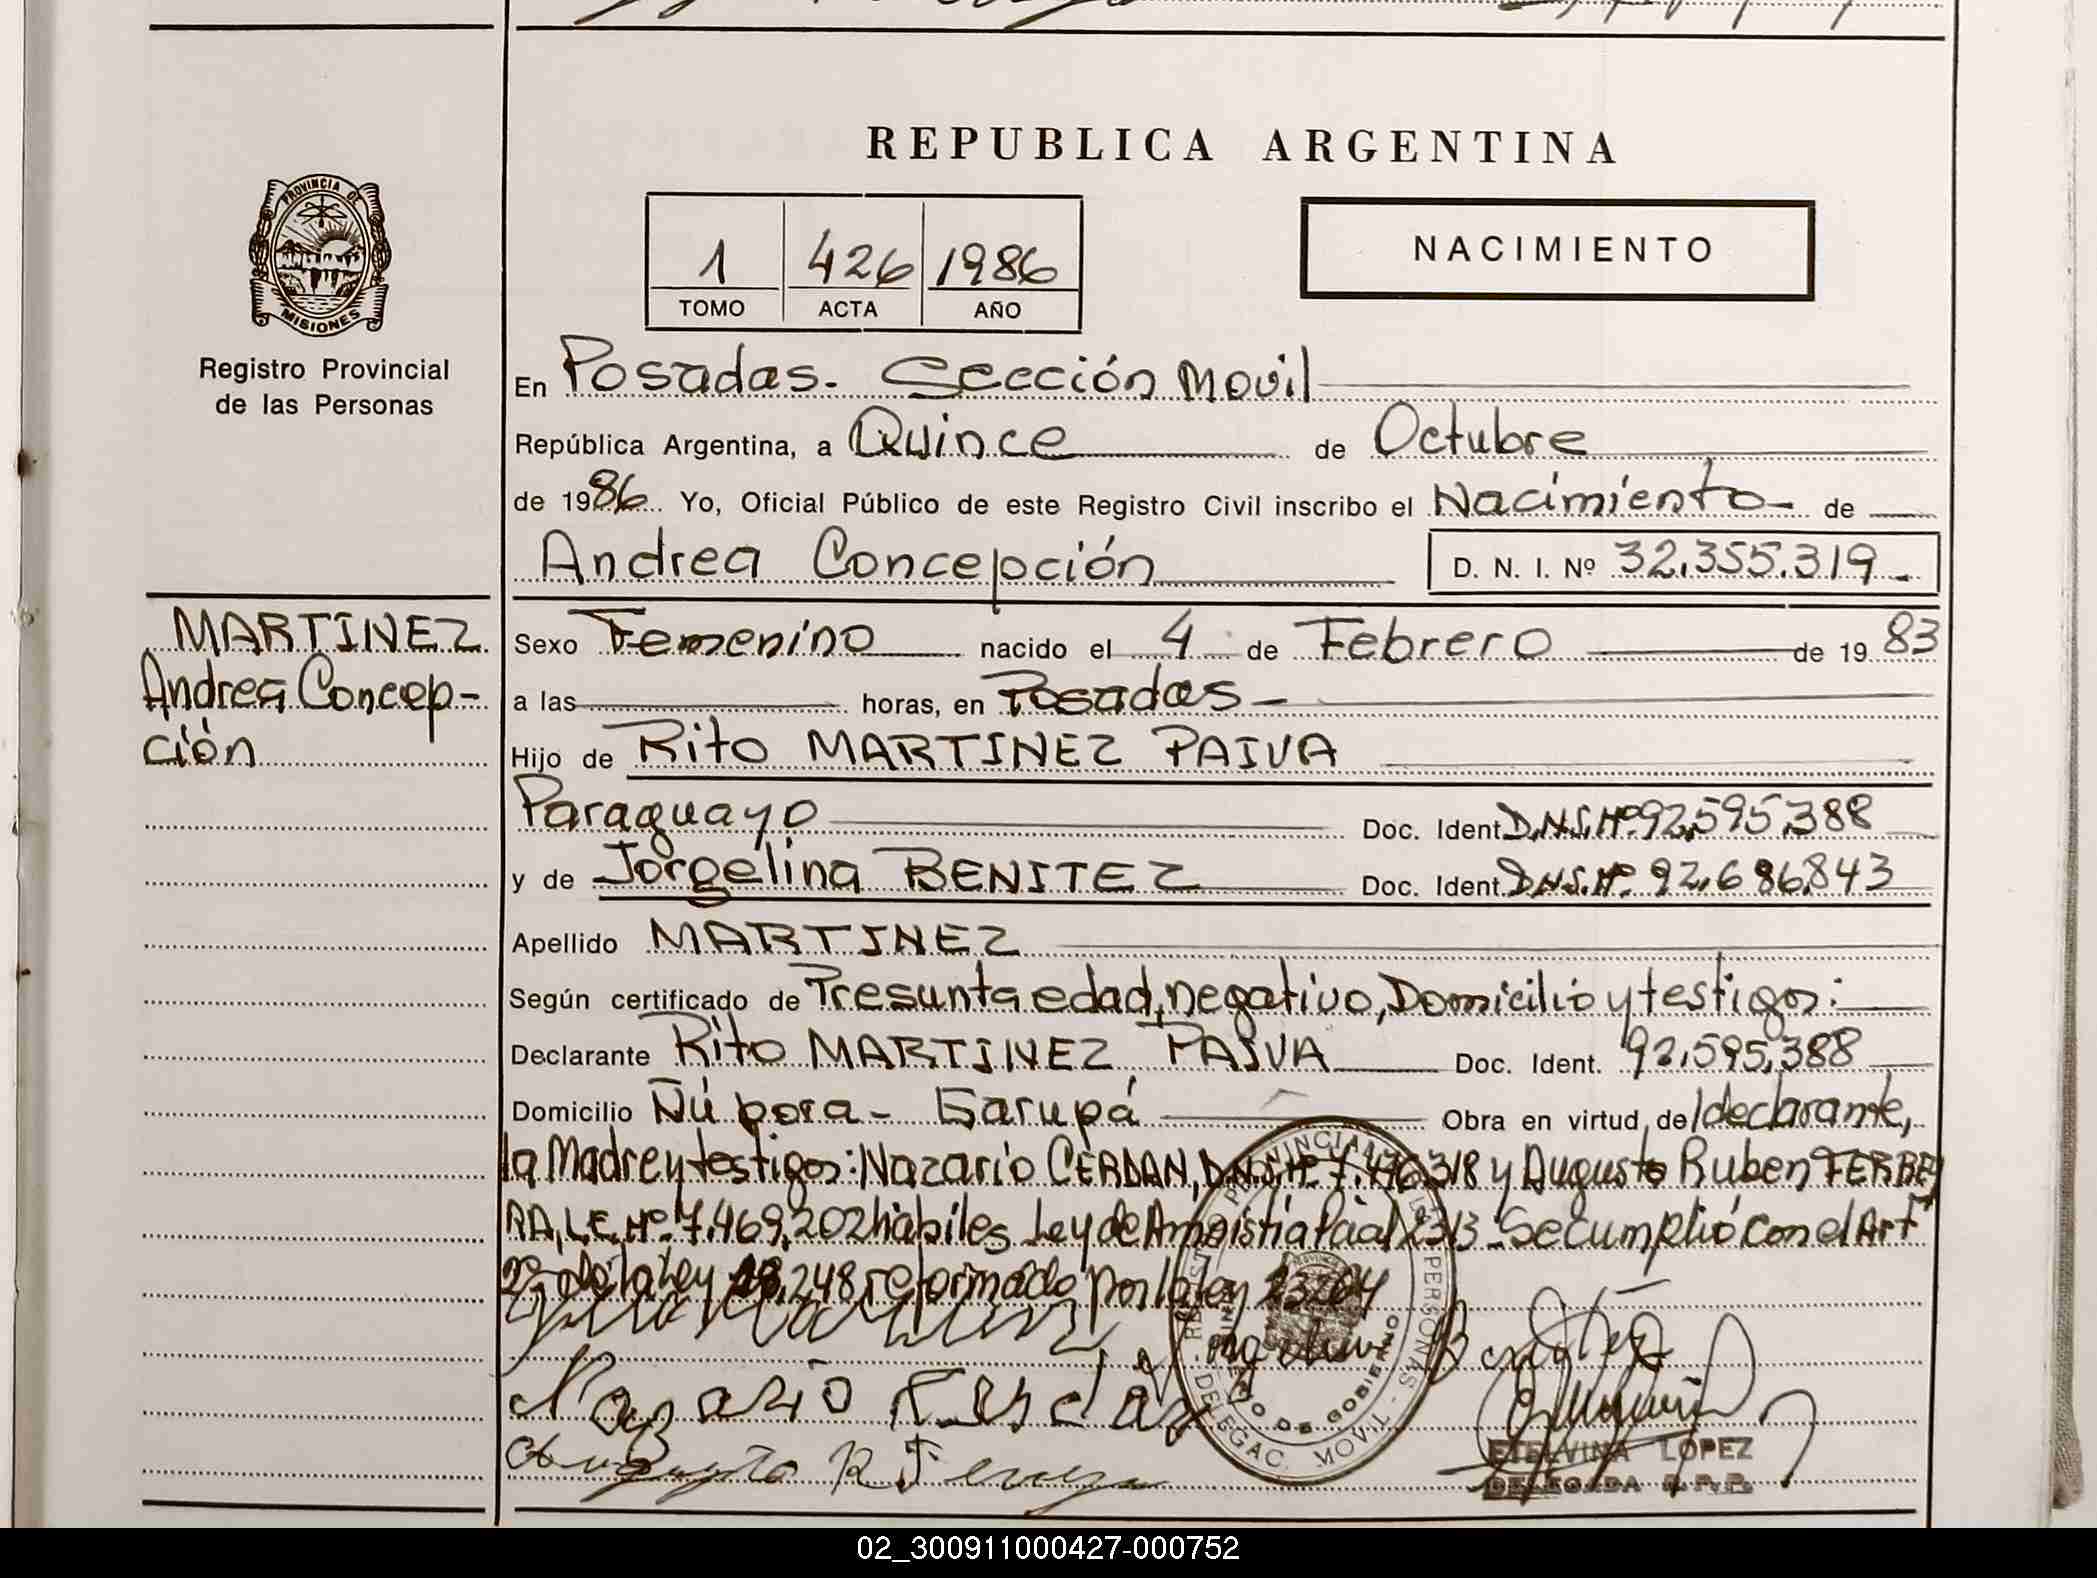 REPUBLICA ARGENTINA
PROVINCIA DE
MISIONES
Registro Provincial
de las Personas
1 426 1986
TOMO ACTA AÑO
NACIMIENTO
En Posadas. Sección Movil
República Argentina, a Quince de Octubre
de 1986 Yo, Oficial Público de este Registro Civil inscribo el Nacimiento de
Andrea Concepción D. N. I. Nº 32.355.319
MARTINEZ
Andrea Concep-
ción
Sexo Femenino nacido el 4 de Febrero de 1983
a las horas, en Posadas
Hijo de Rito MARTINEZ PAIVA
Paraguayo Doc. Ident. D.N.I. Nº 92.595.388
y de Jorgelina BENITEZ Doc. Ident. D.N.I. Nº 92.686.843
Apellido MARTINEZ
Según certificado de Presunta edad, negativo, Domicilio y testigos:
Declarante Rito MARTINEZ PAIVA Doc. Ident. 92.595.388
Domicilio Ñú porá - Garupá Obra en virtud de/declarante,
la Madre y testigos: Nazario CERDAN, D.N.I. Nº 7.476.318 y Augusto Ruben FERREI
RA, L.E. Nº 7.469.202 habiles Ley de Amnistia Pcial 2313 - Se cumplió con el Art
2º de la Ley 18.248 reformado por la Ley 23264
Benitez
Nazario
Augusto R F
PERSONAS - DELEGAC. MOVIL
DE GOBIERNO
ETELVINA LOPEZ
DELEGADA R.P.P.
02_300911000427-000752